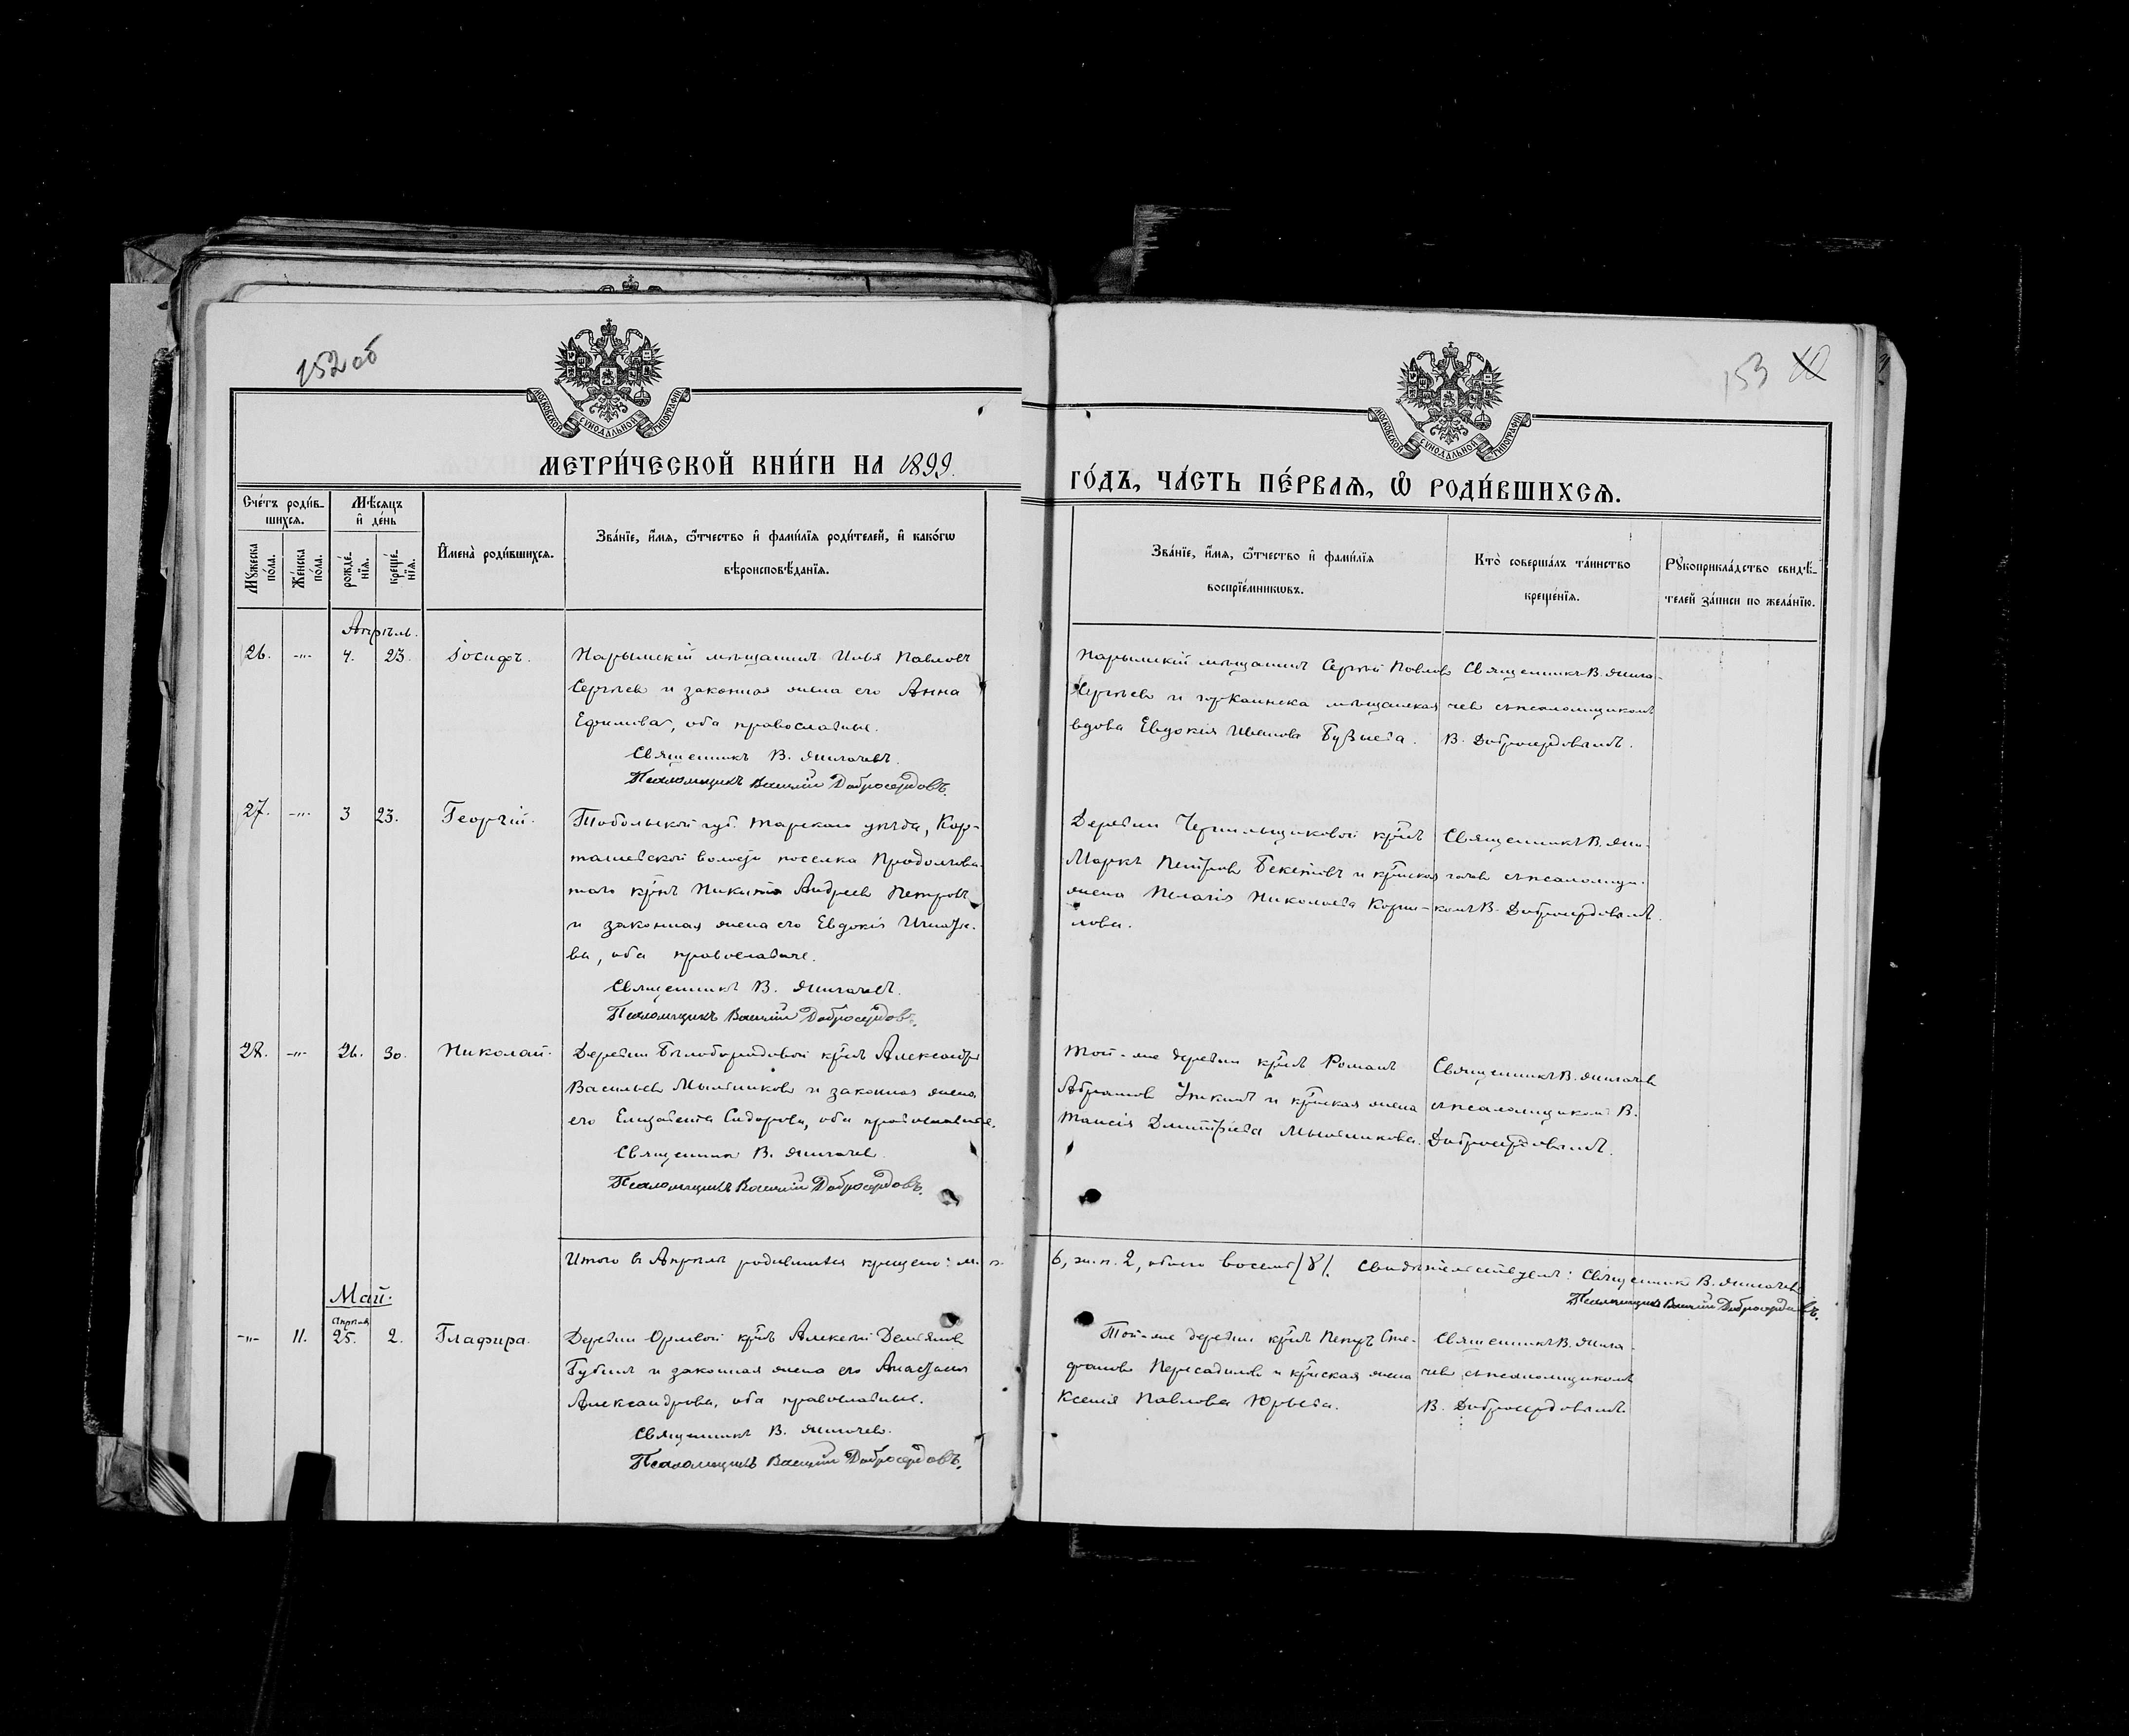 152 об
153 10
МОСКОВСКОЙ СУНОДАЛЬНОЙ ТИПОГРАФІИ
МОСКОВСКОЙ СУНОДАЛЬНОЙ ТИПОГРАФІИ
МЕТРИ́ЧЕСКОЙ КНИ́ГИ НА 1899.
ГО́ДЪ, ЧА́СТЬ ПЕ́РВАѦ, Ѡ҆ РОДИ́ВШИХСѦ.
Сче́тъ роди́в-
шихсѧ.
Мꙋ́жеска по́ла.
Же́нска по́ла.
Мѣ́сѧцъ
и҆ де́нь
рожде́-
нїѧ.
креще́-
нїѧ.
И҆мена̀ роди́вшихсѧ.
Зва́нїе, и҆́мѧ, ѻ҆́тчество и҆ фами́лїѧ роди́телей, и҆ како́гѡ
вѣроисповѣ́данїѧ.
Зва́нїе, и҆́мѧ, ѻ҆́тчество и҆ фами́лїѧ
воспрїе́мникѡвъ.
Кто̀ соверша́лъ та́инство
креще́нїѧ.
Рꙋкоприкла́дство свидѣ́-
телей за́писи по жела́нїю.
Апрѣль.
26. -"- 4. 23. Іосифъ.
Нарымскій мѣщанинъ Илья Павловъ
Сергѣевъ и законная жена его Анна
Ефимова, оба православные.
Священникъ В.
Псаломщикъ Василій Добросердовъ.
Нарымскій мѣщанинъ Сергѣй Павловъ
Сергѣевъ и гор. Каинска мѣщанская
вдова Евдокія Иванова
Священникъ В.
съ псаломщикомъ
В. Добросердовымъ.
27. -"- 3 23. Георгій.
Тобольской губ. Тарскаго уѣзда, Кар-
ташевской волости поселка Продолгова-
таго кр̃нъ Никита Андреевъ Петровъ
и законная жена его Евдокія Игнатье-
ва, оба православные.
Священникъ В.
Псаломщикъ Василій Добросердовъ.
Деревни Чернильщиковой кр̃нъ
Маркъ Петровъ Бекетовъ и кр̃нская
жена Пелагія Николаева Корни-
лова.
Священникъ В.
съ псаломщи-
комъ В. Добросердовымъ.
28. -"- 26. 30. Николай.
Деревни Бѣлобородовой кр̃нъ Александръ
Васильевъ Мыльниковъ и законная жена
его Елизавета Сидорова, оба православные.
Священникъ В.
Псаломщикъ Василій Добросердовъ.
Той-же деревни кр̃нъ Романъ
Абрамовъ и кр̃нская жена
Таисія Дмитріева Мыльникова.
Священникъ В.
съ псаломщикомъ В.
Добросердовымъ.
Итого въ Апрѣлѣ родившихся крещено: м. п.
6, ж. п. 2, обоего восемь /8/. Свидѣтельствуемъ: Священникъ В.
Псаломщикъ Василій Добросердовъ.
Май.
Апрѣля
-"- 11. 25. 2. Глафира.
Деревни Орловой кр̃нъ Алексѣй Дементьевъ
Губинъ и законная жена его Анастасія
Александрова, оба православные.
Священникъ В.
Псаломщикъ Василій Добросердовъ.
Той-же деревни кр̃нъ Петръ Сте-
фановъ Пересадиловъ и кр̃нская жена
Ксенія Павлова Юрьева.
Священникъ В.
съ псаломщикомъ
В. Добросердовымъ.